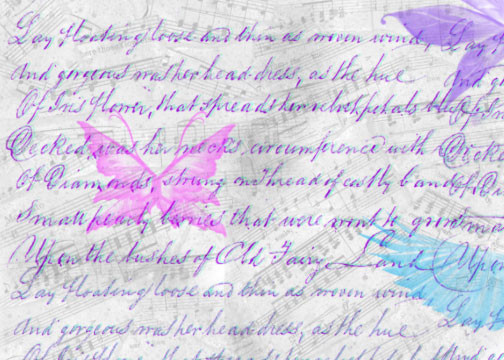 Lay floating loose and thin as woven wind, Lay f
And gorgeous was her head-dress, as the hue And go
Of Iris flower, that spreads her velvet petals blue Of Iris
Decked, was her neck's circumference with Decke
Of Diamonds, strung on thread of costly band Of D
Small pearly berries that were wont to grow Sma
Upon the bushes of Old Fairy Land Upon
Lay floating loose and thin as woven wind, Lay
And gorgeous was her head-dress, as the hue And